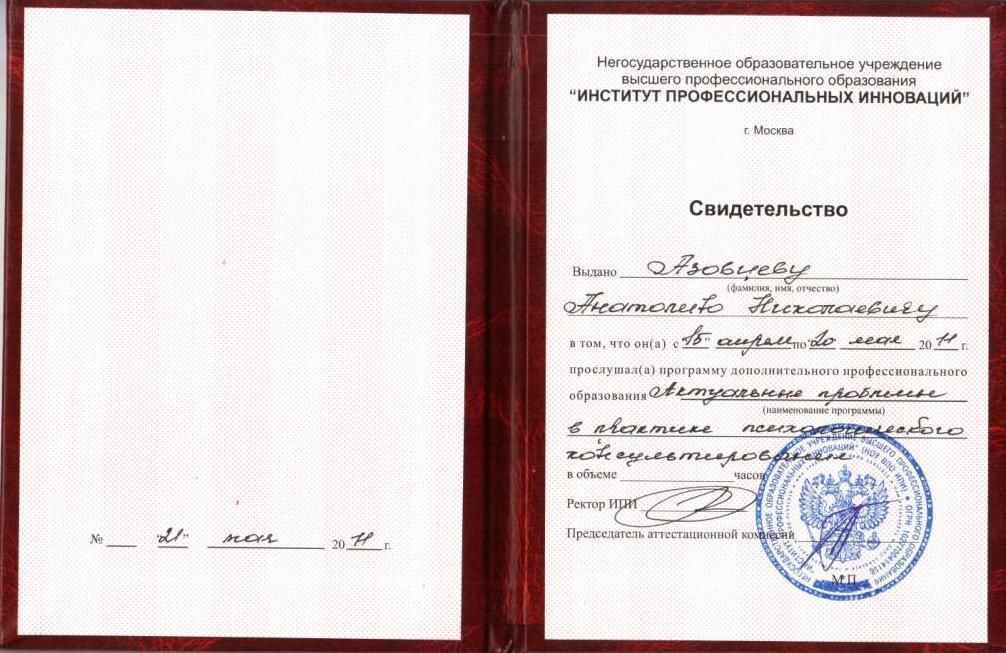 № ____ "21" мая 2011 г.
Негосударственное образовательное учреждение
высшего профессионального образования
“ИНСТИТУТ ПРОФЕССИОНАЛЬНЫХ ИННОВАЦИЙ”
г. Москва
Свидетельство
Выдано Азовцеву
(фамилия, имя, отчество)
Анатолию Николаевичу
в том, что он(а) с "15" апреля по "20" мая 2011 г.
прослушал(а) программу дополнительного профессионального
образования Актуальные проблемы
(наименование программы)
в практике психологического
консультирования
в объеме ____ часов
Ректор ИПИ
Председатель аттестационной комиссии
М.П.
НЕГОСУДАРСТВЕННОЕ ОБРАЗОВАТЕЛЬНОЕ УЧРЕЖДЕНИЕ ВЫСШЕГО ПРОФЕССИОНАЛЬНОГО ОБРАЗОВАНИЯ
"ИНСТИТУТ ПРОФЕССИОНАЛЬНЫХ ИННОВАЦИЙ" (НОУ ВПО ИПИ) ОГРН